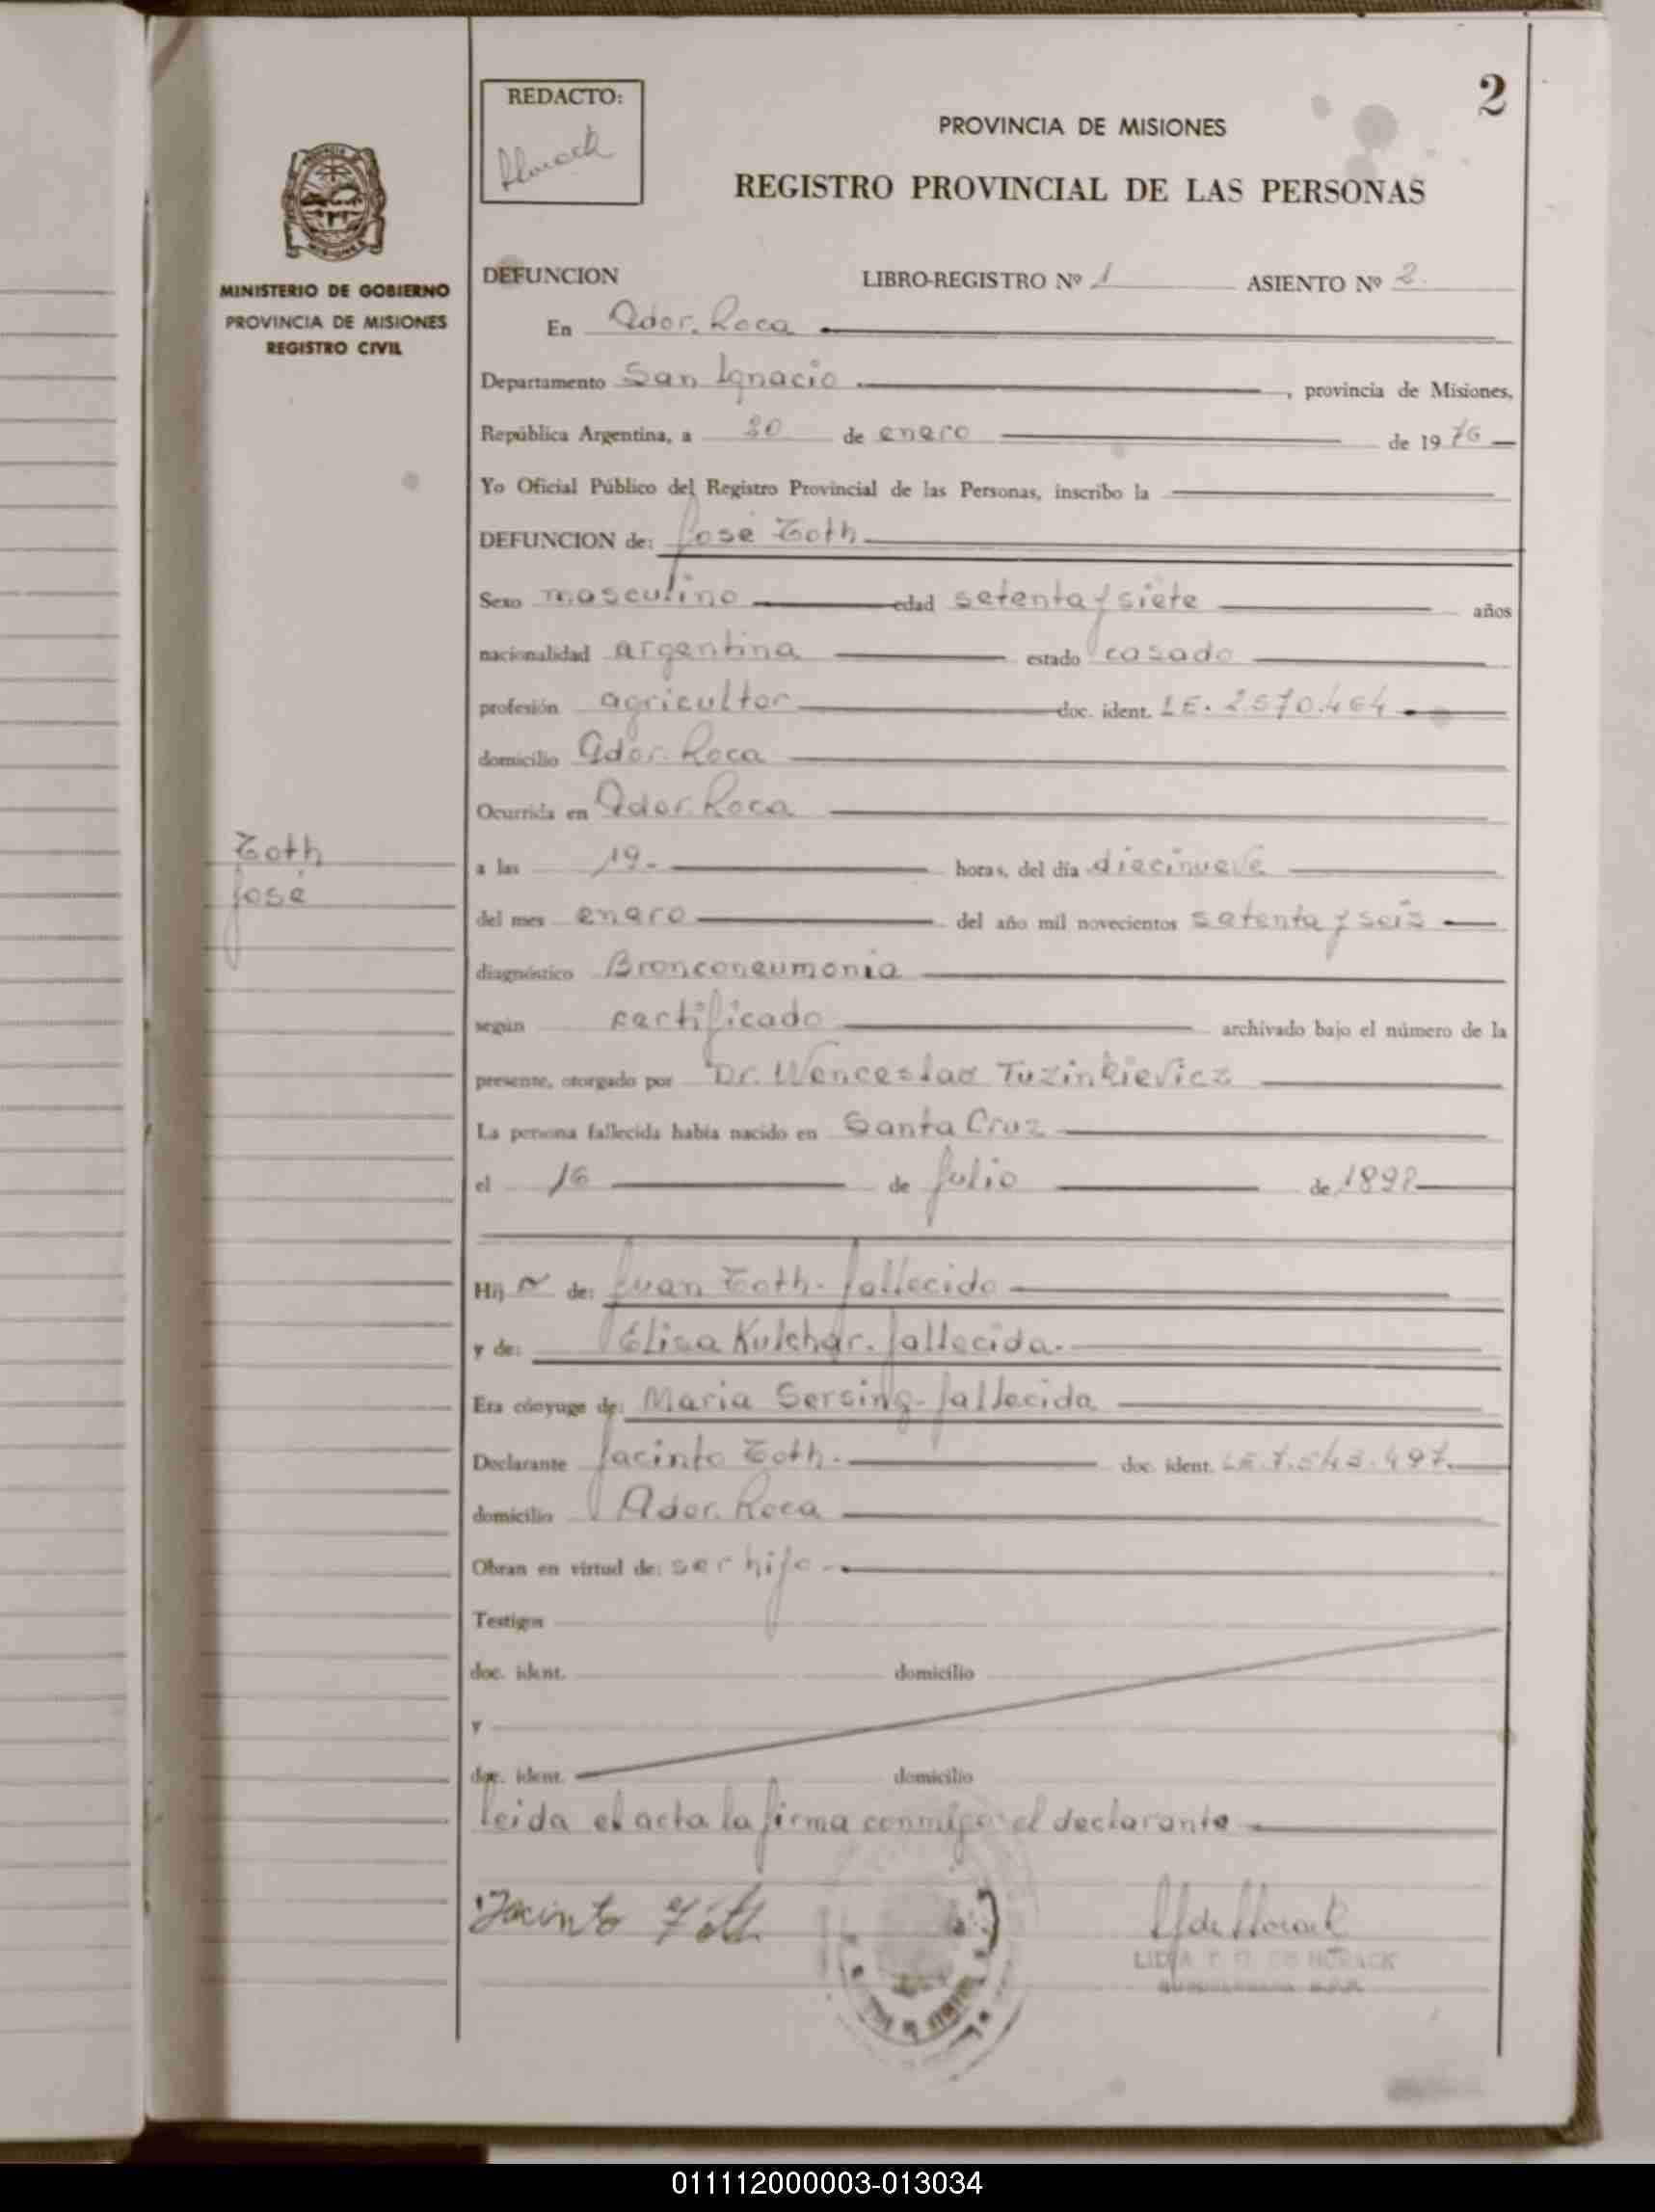 2
REDACTO:
PROVINCIA DE MISIONES
REGISTRO PROVINCIAL DE LAS PERSONAS
MINISTERIO DE GOBIERNO
PROVINCIA DE MISIONES
REGISTRO CIVIL
DEFUNCION LIBRO-REGISTRO Nº 1 ASIENTO Nº 2
En Gdor. Roca
Departamento San Ignacio, provincia de Misiones,
República Argentina, a 20 de enero de 1976
Yo Oficial Público del Registro Provincial de las Personas, inscribo la
DEFUNCION de: José Toth
Sexo masculino edad setenta y siete años
nacionalidad argentina estado casado
profesión agricultor doc. ident. L E. 2.570.464
domicilio Gdor. Roca
Ocurrida en Gdor. Roca
Toth
José
a las 19- horas, del día diecinueve
del mes enero del año mil novecientos setenta y seis
diagnóstico Bronconeumonia
según certificado archivado bajo el número de la
presente, otorgado por Dr. Wenceslao Tuzinkievicz
La persona fallecida había nacido en Santa Cruz
el 16 de julio de 1898
Hij o de: Juan Toth. fallecido
y de: Elisa Kulchar. fallecida.
Era cónyuge de: Maria Sersing- fallecida
Declarante Jacinto Toth. doc. ident. L E. 7.543.497.
domicilio Gdor. Roca
Obran en virtud de: ser hijo
Testigos
doc. ident. domicilio
y
doc. ident. domicilio
leida el acta la firma conmigo el declarante
Jacinto Toth
LIDIA DE HORACK
011112000003-013034